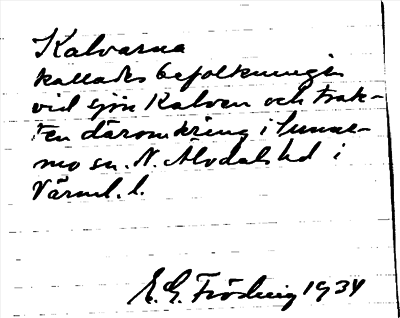 Kalvarna
kallades befolkningen
vid sjön Kalven och trak-
ten däromkring i Sunne-
mo sn. N. Älvdals hd i
Värml. l.
E. G. Fröding 1934